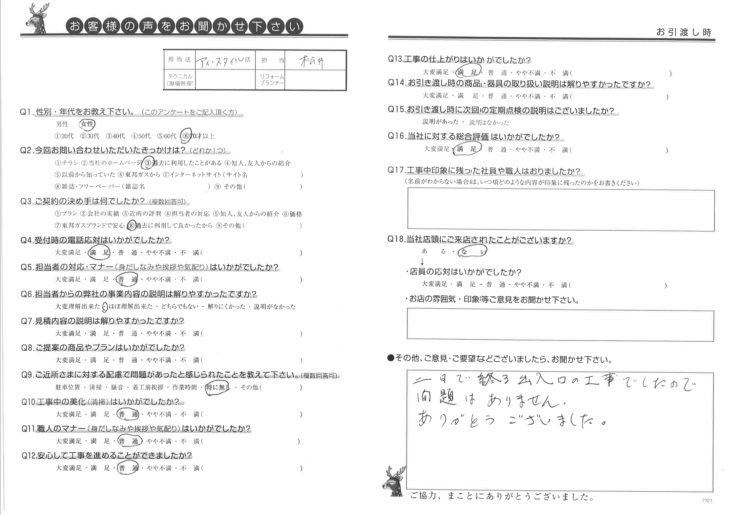 お客様の声をお聞かせ下さい
担当店 アイ・スタイル店 担当
テクニカル(現場管理) リフォームプランナー
Q1.性別・年代をお教え下さい。(このアンケートをご記入頂く方)
男性 女性
①20代 ②30代 ③40代 ④50代 ⑤60代 ⑥70才以上
Q2.今回お問い合わせいただいたきっかけは?(どれか1つ)
①チラシ ②当社のホームページ ③過去に利用したことがある ④知人、友人からの紹介
⑤以前から知っていた ⑥東邦ガスから ⑦インターネットサイト(サイト名 )
⑧雑誌・フリーペーパー(雑誌名 ) ⑨その他( )
Q3.ご契約の決め手は何でしたか?(複数回答可)
①プラン ②会社の実績 ③近所の評判 ④担当者の対応 ⑤知人、友人からの紹介 ⑥価格
⑦東邦ガスブランドで安心 ⑧過去に利用して良かったから ⑨その他( )
Q4.受付時の電話応対はいかがでしたか?
大変満足・満 足・普 通・やや不満・不 満( )
Q5.担当者の対応・マナー(身だしなみや挨拶や気配り)はいかがでしたか?
大変満足・満 足・普 通・やや不満・不 満( )
Q6.担当者からの弊社の事業内容の説明は解りやすかったですか?
大変理解出来た・ほぼ理解出来た・どちらでもない・解りにくかった・説明がなかった
Q7.見積内容の説明は解りやすかったですか?
大変満足・満 足・普 通・やや不満・不 満( )
Q8.ご提案の商品やプランはいかがでしたか?
大変満足・満 足・普 通・やや不満・不 満( )
Q9.ご近所さまに対する配慮で問題があったと感じられたことを教えて下さい。(複数回答可)
駐車位置・清掃・騒音・着工前挨拶・作業時間・特に無し・その他( )
Q10.工事中の美化(清掃)はいかがでしたか?
大変満足・満 足・普 通・やや不満・不 満( )
Q11.職人のマナー(身だしなみや挨拶や気配り)はいかがでしたか?
大変満足・満 足・普 通・やや不満・不 満( )
Q12.安心して工事を進めることができましたか?
大変満足・満 足・普 通・やや不満・不 満( )
お引渡し時
Q13.工事の仕上がりはいかがでしたか?
大変満足・満 足・普 通・やや不満・不 満( )
Q14.お引き渡し時の商品・器具の取り扱い説明は解りやすかったですか?
大変満足・満 足・普 通・やや不満・不 満( )
Q15.お引き渡し時に次回の定期点検の説明はございましたか?
説明があった・説明はなかった
Q16.当社に対する総合評価はいかがでしたか?
大変満足・満 足・普 通・やや不満・不 満( )
Q17.工事中印象に残った社員や職人はおりましたか?
(名前がわからない場合は、いつ頃どのような内容が印象に残ったのかをお書きください)
Q18.当社店頭にご来店されたことがございますか?
ある・ない
↓
・店員の応対はいかがでしたか?
大変満足・満 足・普 通・やや不満・不 満( )
・お店の雰囲気・印象等ご意見をお聞かせ下さい。
●その他、ご意見・ご要望などございましたら、お聞かせ下さい。
二日で終る出入口の工事でしたので
問題はありません.
ありがとうございました。
ご協力、まことにありがとうございました。